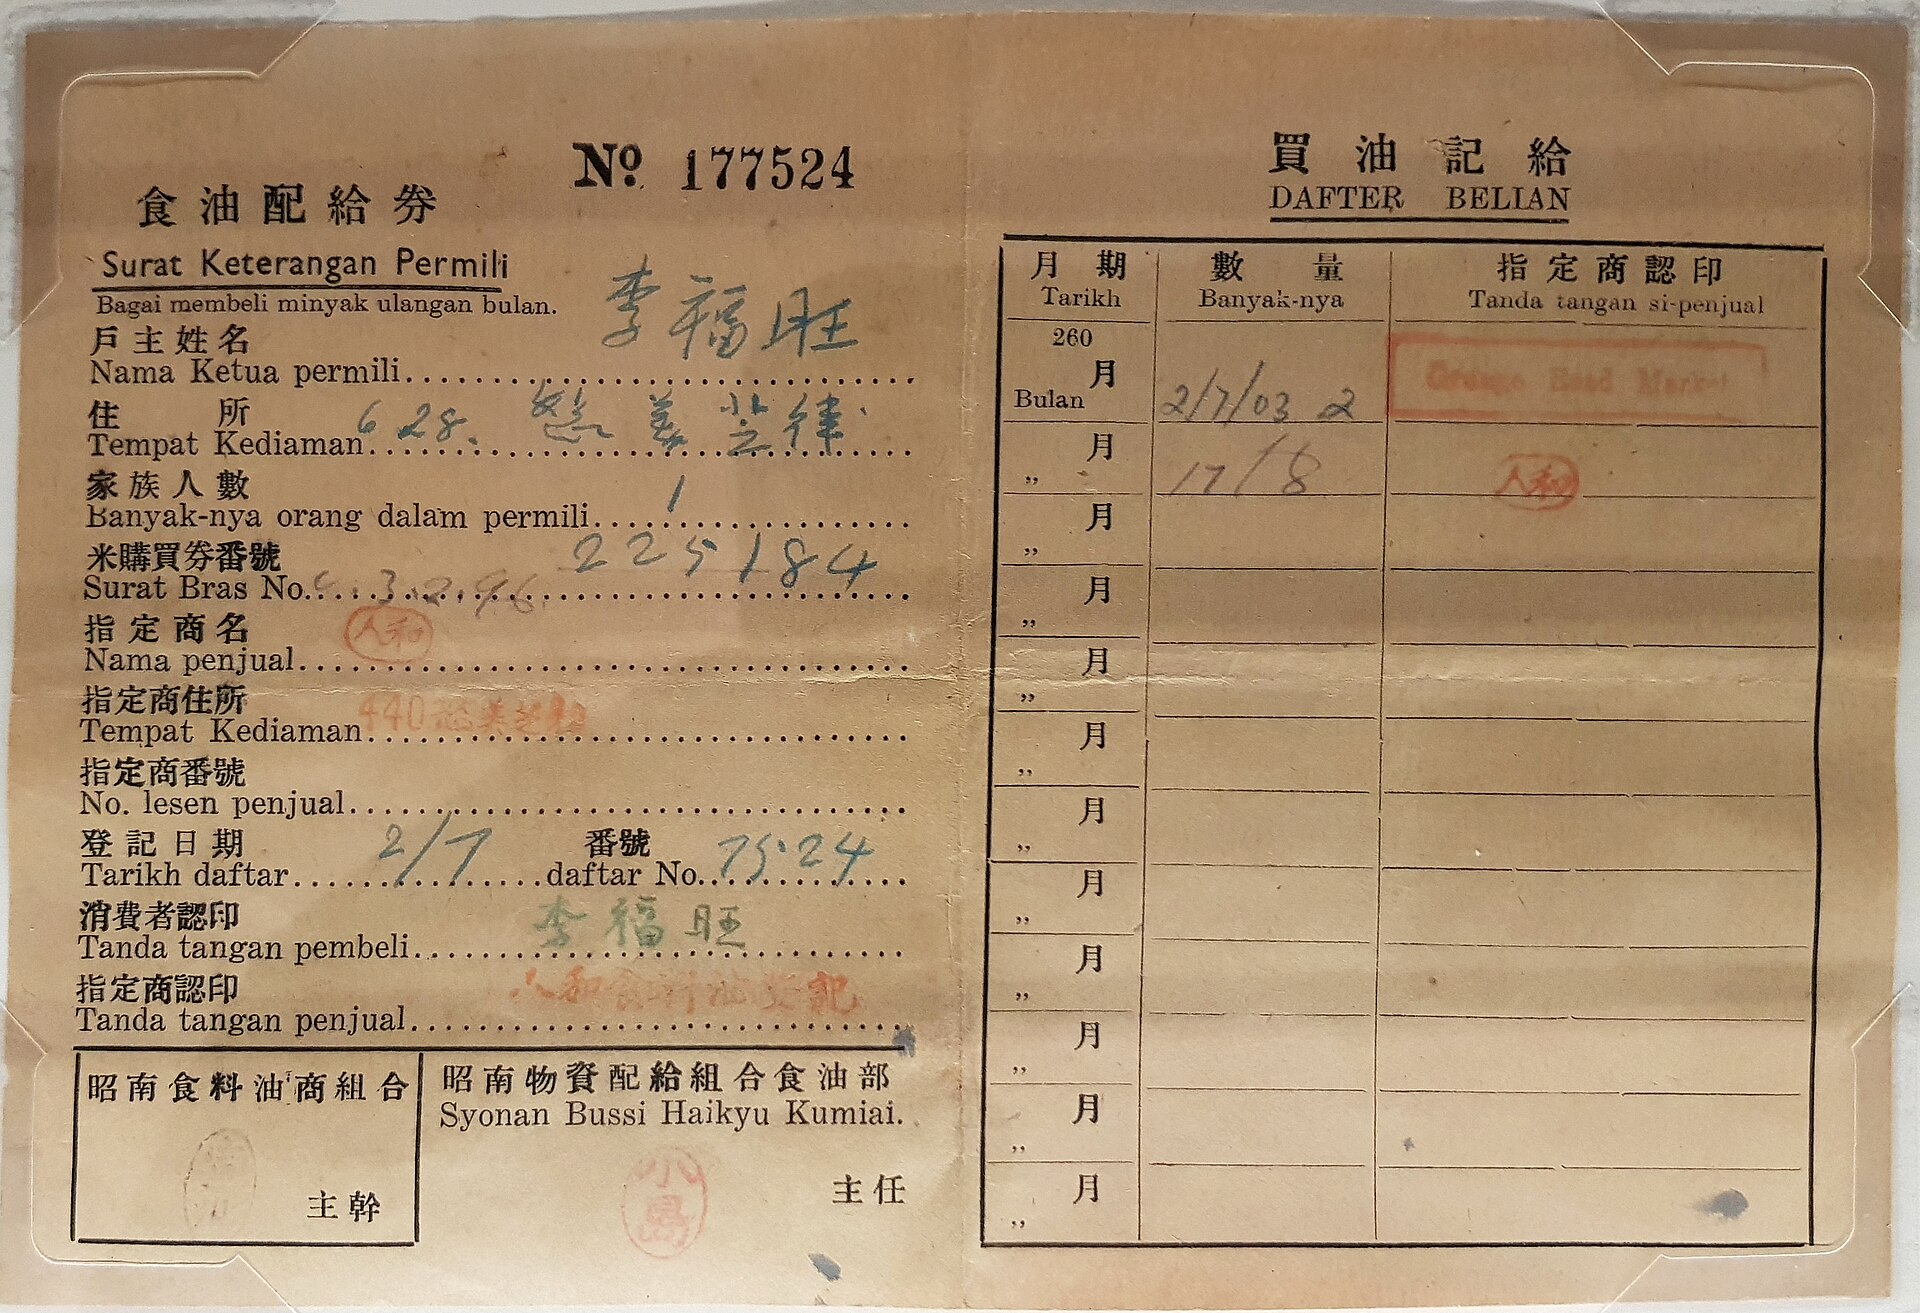 No 177524
食油配給券
Surat Keterangan Permili
Bagai membeli minyak ulangan bulan.
戶主姓名 李福旺
Nama Ketua permili
住所 628. 美芝律
Tempat Kediaman
家族人數 1
Banyak-nya orang dalam permili
米購買券番號 225184
Surat Bras No.
指定商名 人和
Nama penjual
指定商住所 440
Tempat Kediaman
指定商番號
No. lesen penjual
登記日期 2/7 番號 7524
Tarikh daftar daftar No.
消費者認印 李福旺
Tanda tangan pembeli
指定商認印 人和食料油登記
Tanda tangan penjual
昭南食料油商組合
主幹
昭南物資配給組合食油部
Syonan Bussi Haikyu Kumiai.
小島
主任
買油記給
DAFTER BELIAN
月期 數量 指定商認印
Tarikh Banyak-nya Tanda tangan si-penjual
260
月
Bulan 2/7/03 2 Road Market
月
„ 17/8 人和
月
„
月
„
月
„
月
„
月
„
月
„
月
„
月
„
月
„
月
„